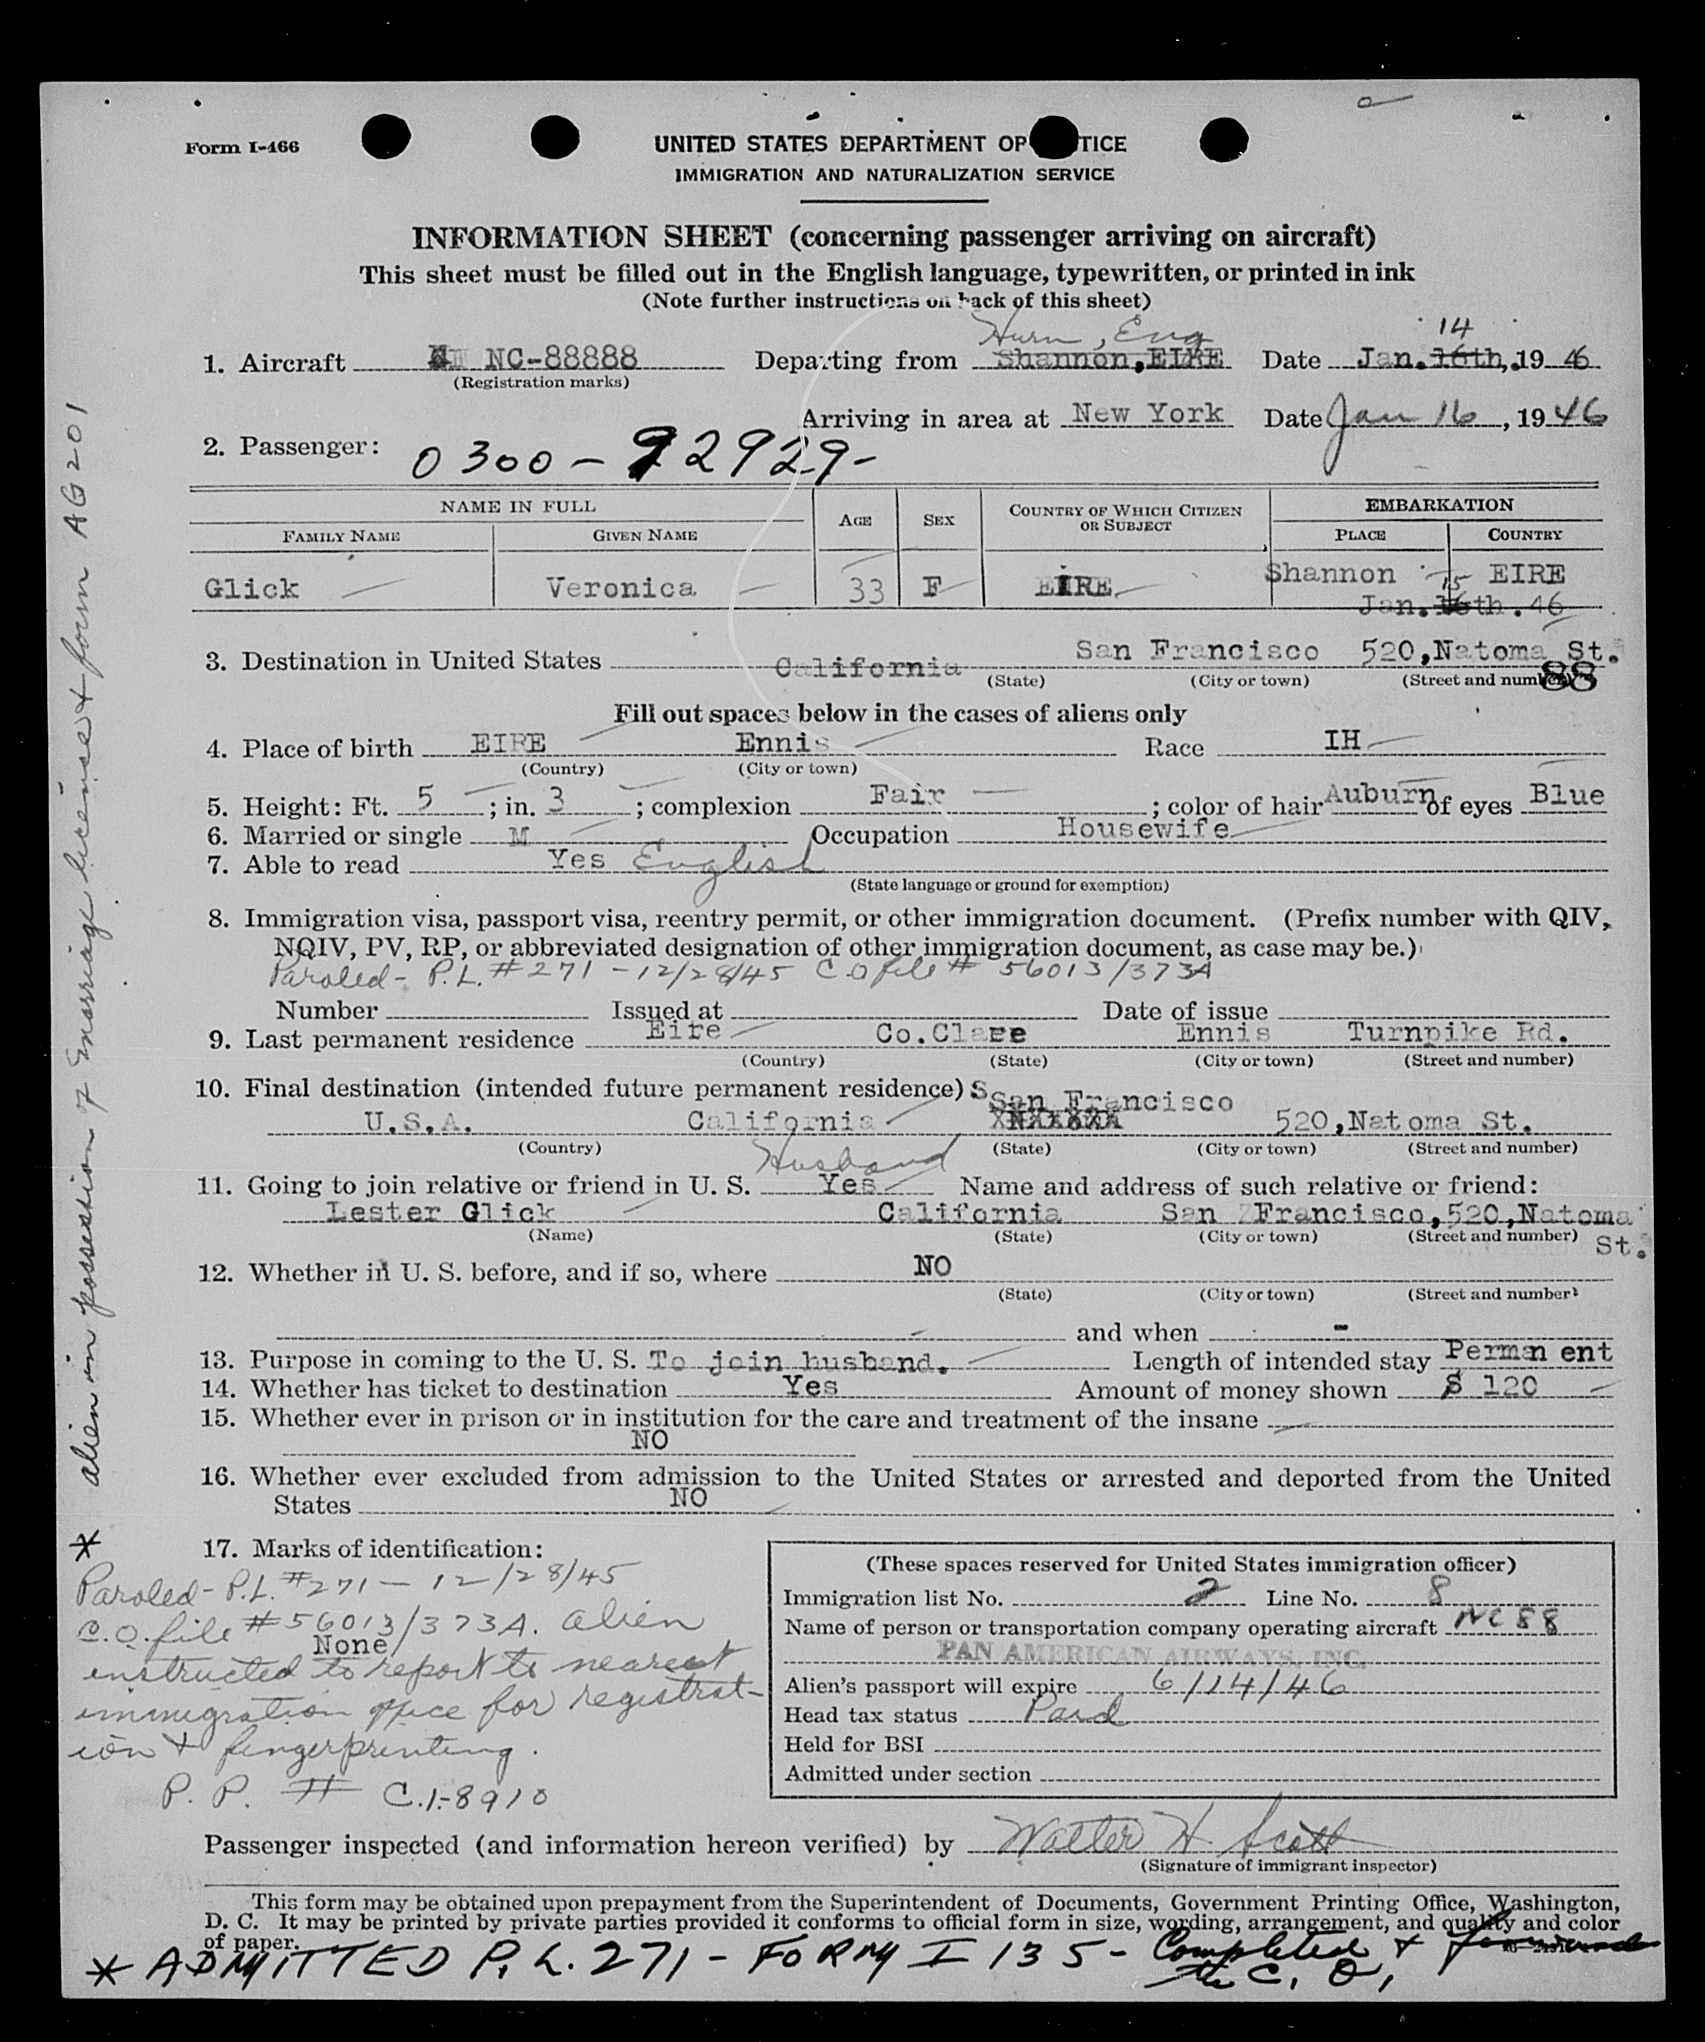 Form I-466
UNITED STATES DEPARTMENT OF JUSTICE
IMMIGRATION AND NATURALIZATION SERVICE
INFORMATION SHEET (concerning passenger arriving on aircraft)
This sheet must be filled out in the English language, typewritten, or printed in ink
(Note further instructions on back of this sheet)
Hurn, Eng 14
1. Aircraft NC-88888 Departing from Shannon,EIRE Date Jan.16th,.1946
(Registration marks)
Arriving in area at New York Date Jan 16, 1946
2. Passenger: 0300-92929-
NAME IN FULL AGE SEX COUNTRY OF WHICH CITIZEN OR SUBJECT EMBARKATION
FAMILY NAME GIVEN NAME PLACE COUNTRY
Glick Veronica 33 F EIRE Shannon EIRE
15
Jan.16th.46
3. Destination in United States California San Francisco 520,Natoma St.
(State) (City or town) (Street and number)
88
Fill out spaces below in the cases of aliens only
4. Place of birth EIRE Ennis Race IH
(Country) (City or town)
5. Height: Ft. 5; in. 3; complexion Fair; color of hair Auburn of eyes Blue
6. Married or single M Occupation Housewife
7. Able to read Yes English
(State language or ground for exemption)
8. Immigration visa, passport visa, reentry permit, or other immigration document. (Prefix number with QIV,
NQIV, PV, RP, or abbreviated designation of other immigration document, as case may be.)
Paroled- P.L. #271-12/28/45 C O file # 56013/373A
Number Issued at Date of issue
9. Last permanent residence Eire Co.Clare Ennis Turnpike Rd.
(Country) (State) (City or town) (Street and number)
10. Final destination (intended future permanent residence) S
San Francisco
U.S.A. California 520,Natoma St.
(Country) (State) (City or town) (Street and number)
Husband
11. Going to join relative or friend in U. S. Yes Name and address of such relative or friend:
Lester Glick California San Francisco,520,Natoma St.
(Name) (State) (City or town) (Street and number)
12. Whether in U. S. before, and if so, where NO
(State) (City or town) (Street and number)
and when -
13. Purpose in coming to the U. S. To join husband. Length of intended stay Perman ent
14. Whether has ticket to destination Yes Amount of money shown $ 120
15. Whether ever in prison or in institution for the care and treatment of the insane
NO
16. Whether ever excluded from admission to the United States or arrested and deported from the United
States NO
17. Marks of identification:
Paroled- P.L. #271- 12/28/45
C.O. file #56013/373A. alien
None
instructed to report to nearest
immigration office for registrat-
ion & fingerprinting.
P. P. # C.1-8910
(These spaces reserved for United States immigration officer)
Immigration list No. 2 Line No. 8
Name of person or transportation company operating aircraft NC 88
PAN AMERICAN AIRWAYS, INC.
Alien's passport will expire 6/14/46
Head tax status Paid
Held for BSI
Admitted under section
Passenger inspected (and information hereon verified) by Walter H. Scott
(Signature of immigrant inspector)
This form may be obtained upon prepayment from the Superintendent of Documents, Government Printing Office, Washington,
D. C. It may be printed by private parties provided it conforms to official form in size, wording, arrangement, and quality and color
of paper.
* ADMITTED P.L. 271 - FORM I 135 - Completed &
the C. O.
* alien in possession of marriage license & form AG201